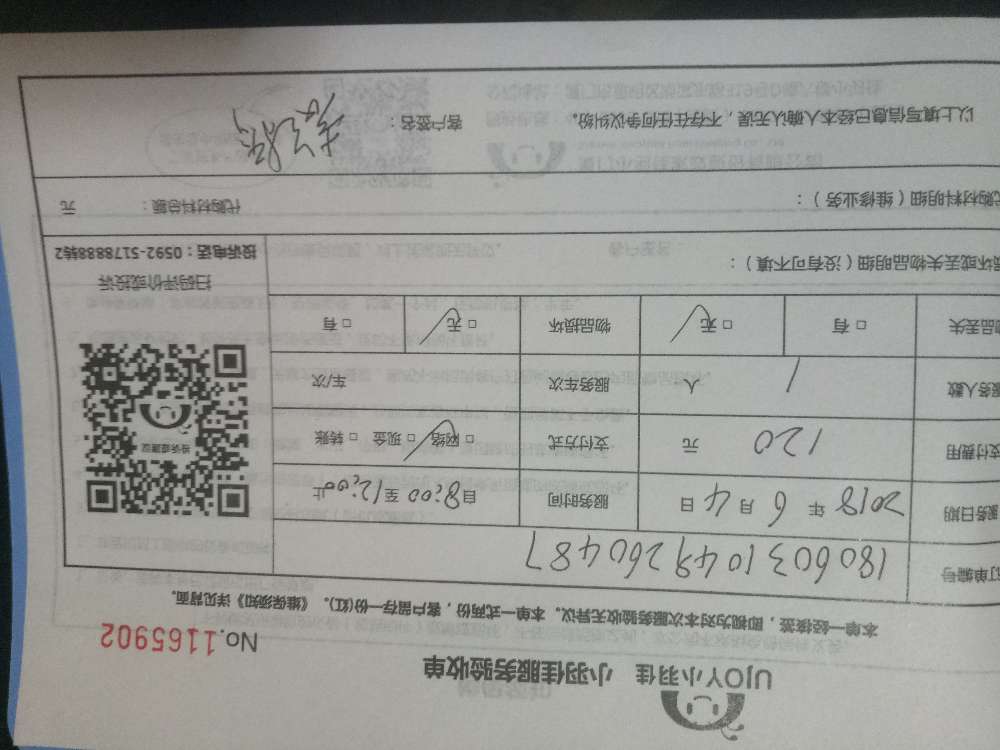 UJOY小羽佳 小羽佳服务验收单
No.1165902
本单一经接签，即视为对本次服务验收无异议。本单一式两份，客户留存一份(红)。《维保须知》详见背面。
订单编号 180603104926 0487
服务日期 2018 年 6 月 4 日 服务时间 自8:00至12:00止
支付费用 120 元 支付方式 □ 网络 □ 现金 □ 转账
服务人数 1 人 服务车次 车/次
物品丢失 □ 有 □ 无 物品损坏 □ 无 □ 有
投诉或建议
扫码评价或投诉
投诉电话：0592-5178888转2
损坏或丢失物品明细（没有可不填）：
代购材料明细（维修业务）： 代购材料总额： 元
以上填写信息已经本人确认无误，不存在任何争议纠纷。 客户签名：